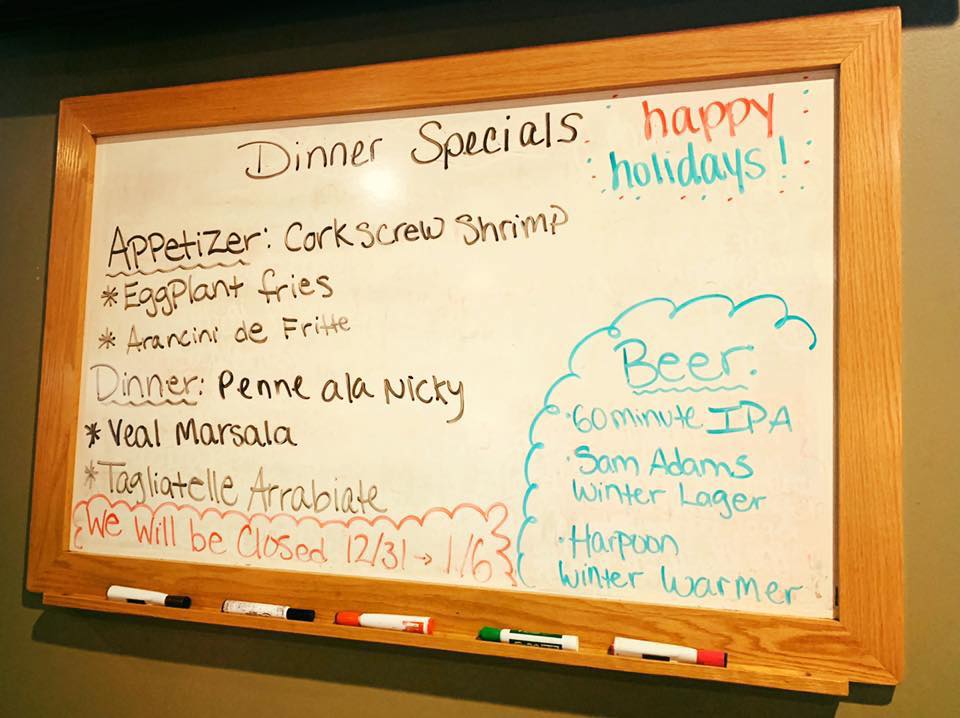 Dinner Specials
happy
holidays!
Appetizer: Corkscrew Shrimp
* Eggplant fries
* Arancini de Fritte
Dinner: Penne ala Nicky
* Veal Marsala
* Tagliatelle Arrabiate
We Will be Closed 12/31 → 1/6
Beer:
· 60 minute IPA
· Sam Adams
Winter Lager
· Harpoon
Winter Warmer